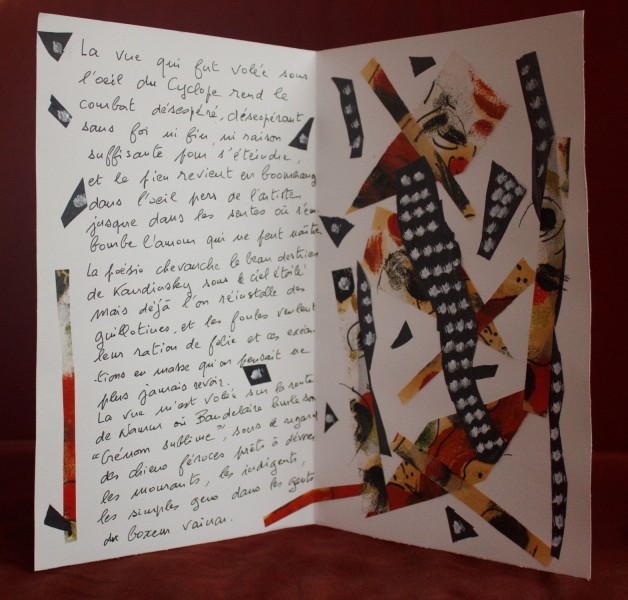 La vue qui fut volée sous
l'oeil du Cyclope rend le
combat désespéré, désespérant
sans foi ni fin, ni raison
suffisante pour s'éteindre,
et le pieu revient en boomerang
dans l'oeil pers de l'artiste
jusque dans les sentes où s'em
bourbe l'amour qui ne peut naître.
La poésie chevauche le beau destrier
de Kandinsky sous le ciel étoilé
mais déjà l'on réinstalle des
guillotines, et les foules veulent
leur ration de folie et ces exécu-
tions en masse qu'on pensait ne
plus jamais revoir.
La vue m'est volée sur la route
de Namur où Baudelaire hurle son
"Crénom sublime", sous le regard
des chiens féroces prêts à dévorer
les mourants, les indigents,
les simples gens dans les gants
du boxeur vaincu.